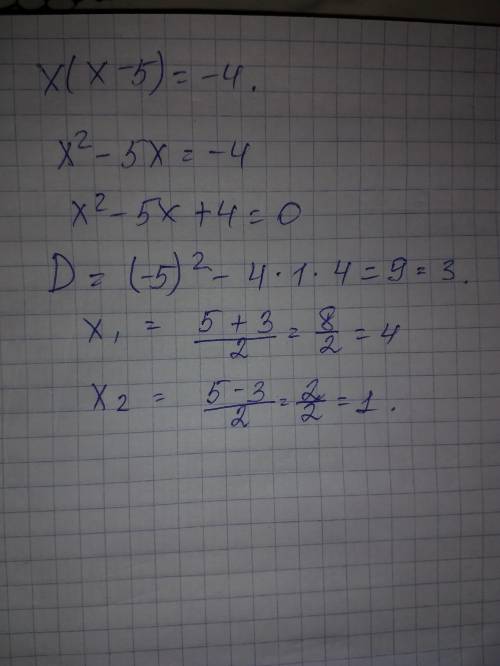 x(x-5)=-4.
x²-5x=-4
x²-5x+4=0
D=(-5)²-4·1·4=9=3.
x₁ = (5+3)/2 = 8/2 = 4
x₂ = (5-3)/2 = 2/2 = 1.